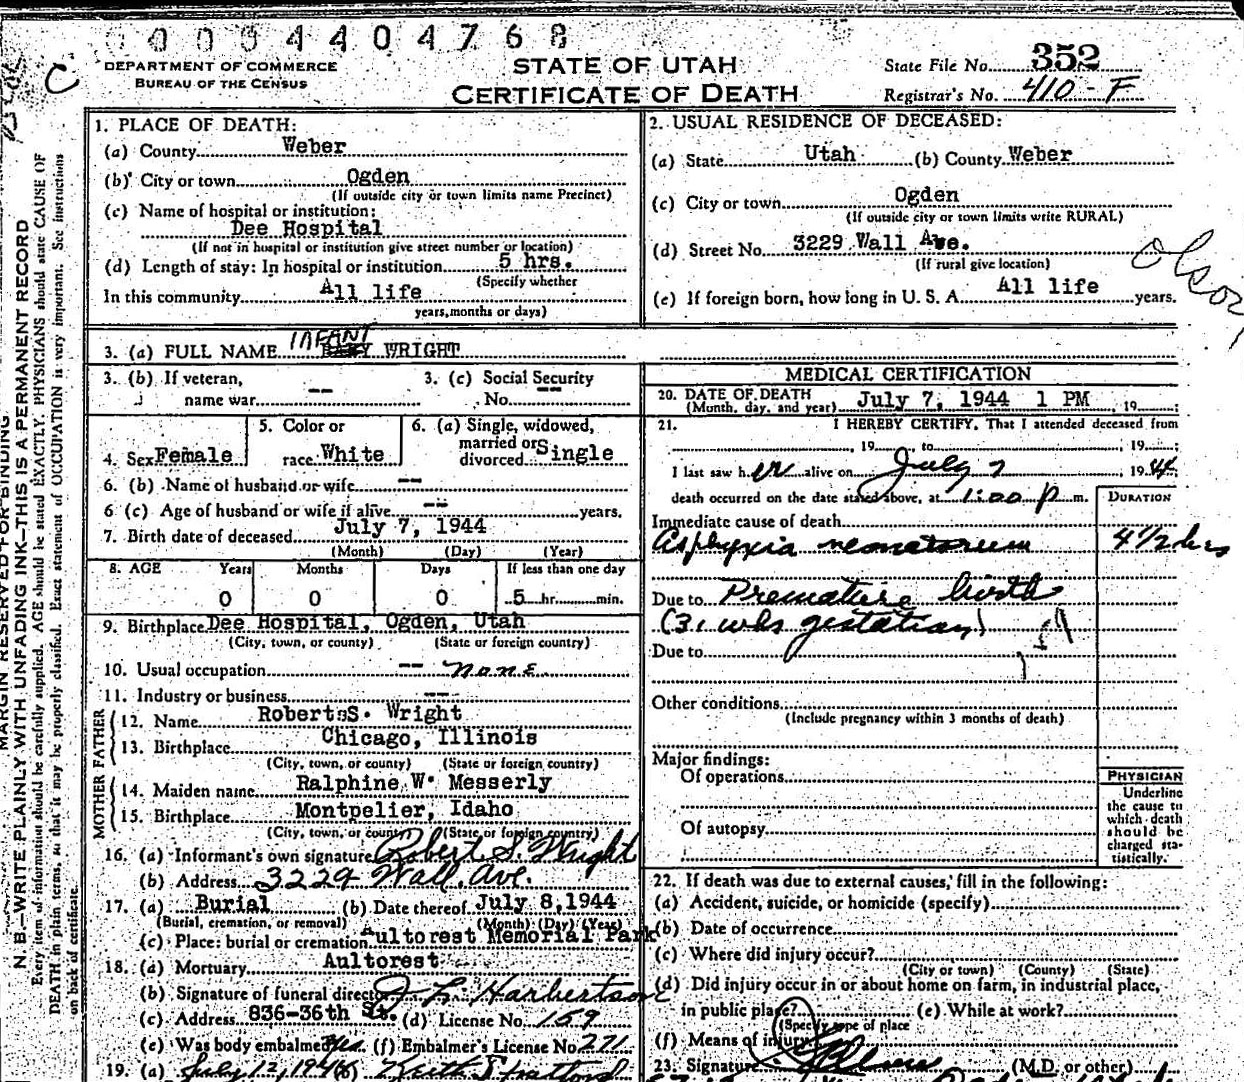 0004404768
C
DEPARTMENT OF COMMERCE
BUREAU OF THE CENSUS
STATE OF UTAH
CERTIFICATE OF DEATH
State File No. 352
Registrar's No. 410-F
MARGIN RESERVED FOR BINDING
N. B.—WRITE PLAINLY WITH UNFADING INK—THIS IS A PERMANENT RECORD
Every item of information should be carefully supplied. AGE should be stated EXACTLY. PHYSICIANS should state CAUSE OF
DEATH in plain terms, so that it may be properly classified. Exact statement of OCCUPATION is very important. See instructions
on back of certificate.
1. PLACE OF DEATH:
(a) County Weber
(b) City or town Ogden
(If outside city or town limits name Precinct)
(c) Name of hospital or institution:
Dee Hospital
(If not in hospital or institution give street number or location)
(d) Length of stay: In hospital or institution 5 hrs.
(Specify whether
In this community All life
years, months or days)
2. USUAL RESIDENCE OF DECEASED:
(a) State Utah (b) County Weber
(c) City or town Ogden
(If outside city or town limits write RURAL)
(d) Street No. 3229 Wall Ave.
(If rural give location)
(e) If foreign born, how long in U. S. A. All life years.
Olson
3. (a) FULL NAME INFANT BABY WRIGHT
3. (b) If veteran, name war --
3. (c) Social Security No. --
4. Sex Female
5. Color or race White
6. (a) Single, widowed, married or divorced Single
6. (b) Name of husband or wife --
6. (c) Age of husband or wife if alive -- years.
7. Birth date of deceased July 7, 1944
(Month) (Day) (Year)
8. AGE Years Months Days If less than one day
0 0 0 5 hr. min.
9. Birthplace Dee Hospital, Ogden, Utah
(City, town, or county) (State or foreign country)
10. Usual occupation -- none
11. Industry or business --
FATHER
12. Name Robert S. Wright
13. Birthplace Chicago, Illinois
(City, town, or county) (State or foreign country)
MOTHER
14. Maiden name Ralphine W. Messerly
15. Birthplace Montpelier, Idaho
(City, town, or county) (State or foreign country)
16. (a) Informant's own signature Robert S. Wright
(b) Address 3229 Wall Ave.
17. (a) Burial (b) Date thereof July 8, 1944
(Burial, cremation, or removal) (Month) (Day) (Year)
(c) Place: burial or cremation Aultorest Memorial Park
18. (a) Mortuary Aultorest
(b) Signature of funeral director J L Harbertson
(c) Address 836-36th St. (d) License No. 159
(e) Was body embalmed Yes (f) Embalmer's License No. 271
19. (a) July 12, 1944 (b) Keith Stratford
MEDICAL CERTIFICATION
20. DATE OF DEATH
(Month, day, and year) July 7, 1944 1 PM, 19
21. I HEREBY CERTIFY, That I attended deceased from
19 to 19
I last saw her alive on July 7 1944
death occurred on the date stated above, at 1:00 P m.
DURATION
Immediate cause of death
Asphyxia neonatorum 4 1/2 hrs
Due to Premature birth
(31 wks gestation)
Due to
159
Other conditions
(Include pregnancy within 3 months of death)
Major findings:
Of operations
Of autopsy
PHYSICIAN
Underline
the cause to
which death
should be
charged sta-
tistically.
22. If death was due to external causes, fill in the following:
(a) Accident, suicide, or homicide (specify)
(b) Date of occurrence
(c) Where did injury occur?
(City or town) (County) (State)
(d) Did injury occur in or about home on farm, in industrial place,
in public place? (e) While at work?
(Specify type of place
(f) Means of injury
23. Signature (M.D. or other)